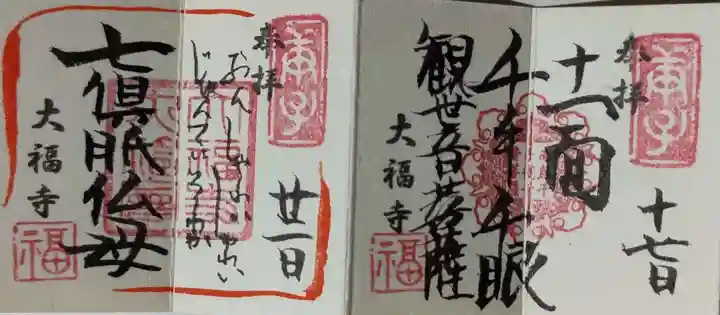 奉拝
廿一日
おん しゃれい しゅれい
じゅんてい そわか
七倶胝仏母
大福寺
福
奉拝
十七日
十一面
千手千眼
観世音菩薩
大福寺
福